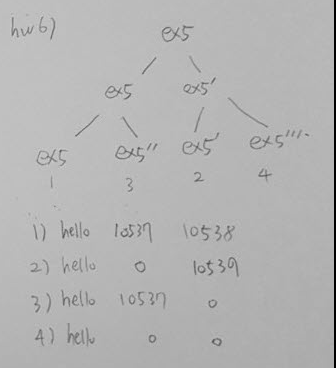 hw6)
ex5
ex5 ex5'
ex5 ex5'' ex5' ex5'''
1 3 2 4
1) hello 10537 10538
2) hello 0 10539
3) hello 10537 0
4) hello 0 0